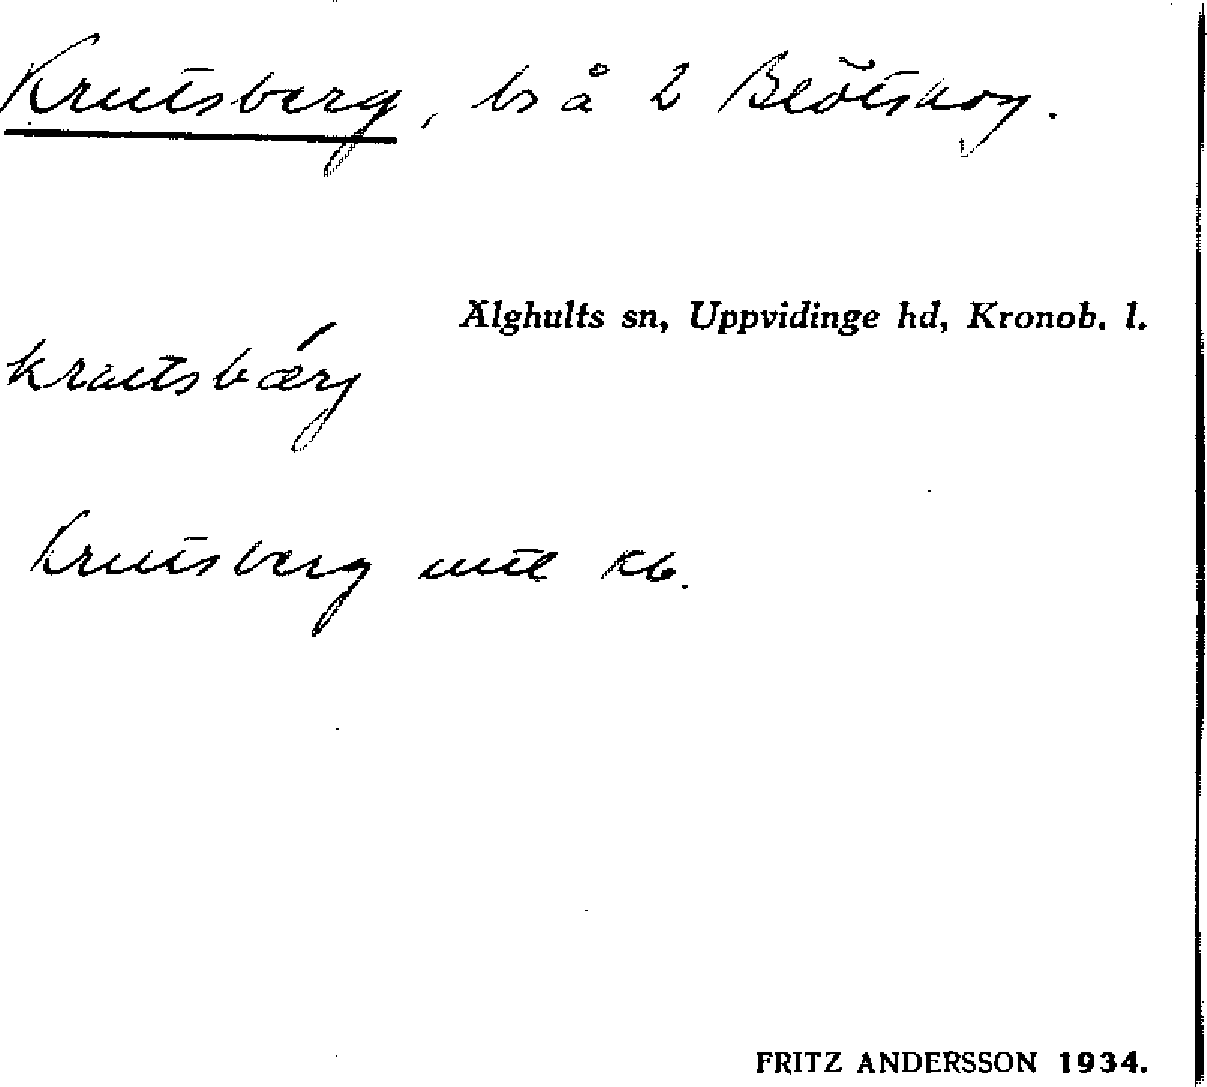 Krutsberg, bs å 2 Blötskog.
Älghults sn, Uppvidinge hd, Kronob. l.
krutsbærj
Krutsberg uttl Kb.
FRITZ ANDERSSON 1934.